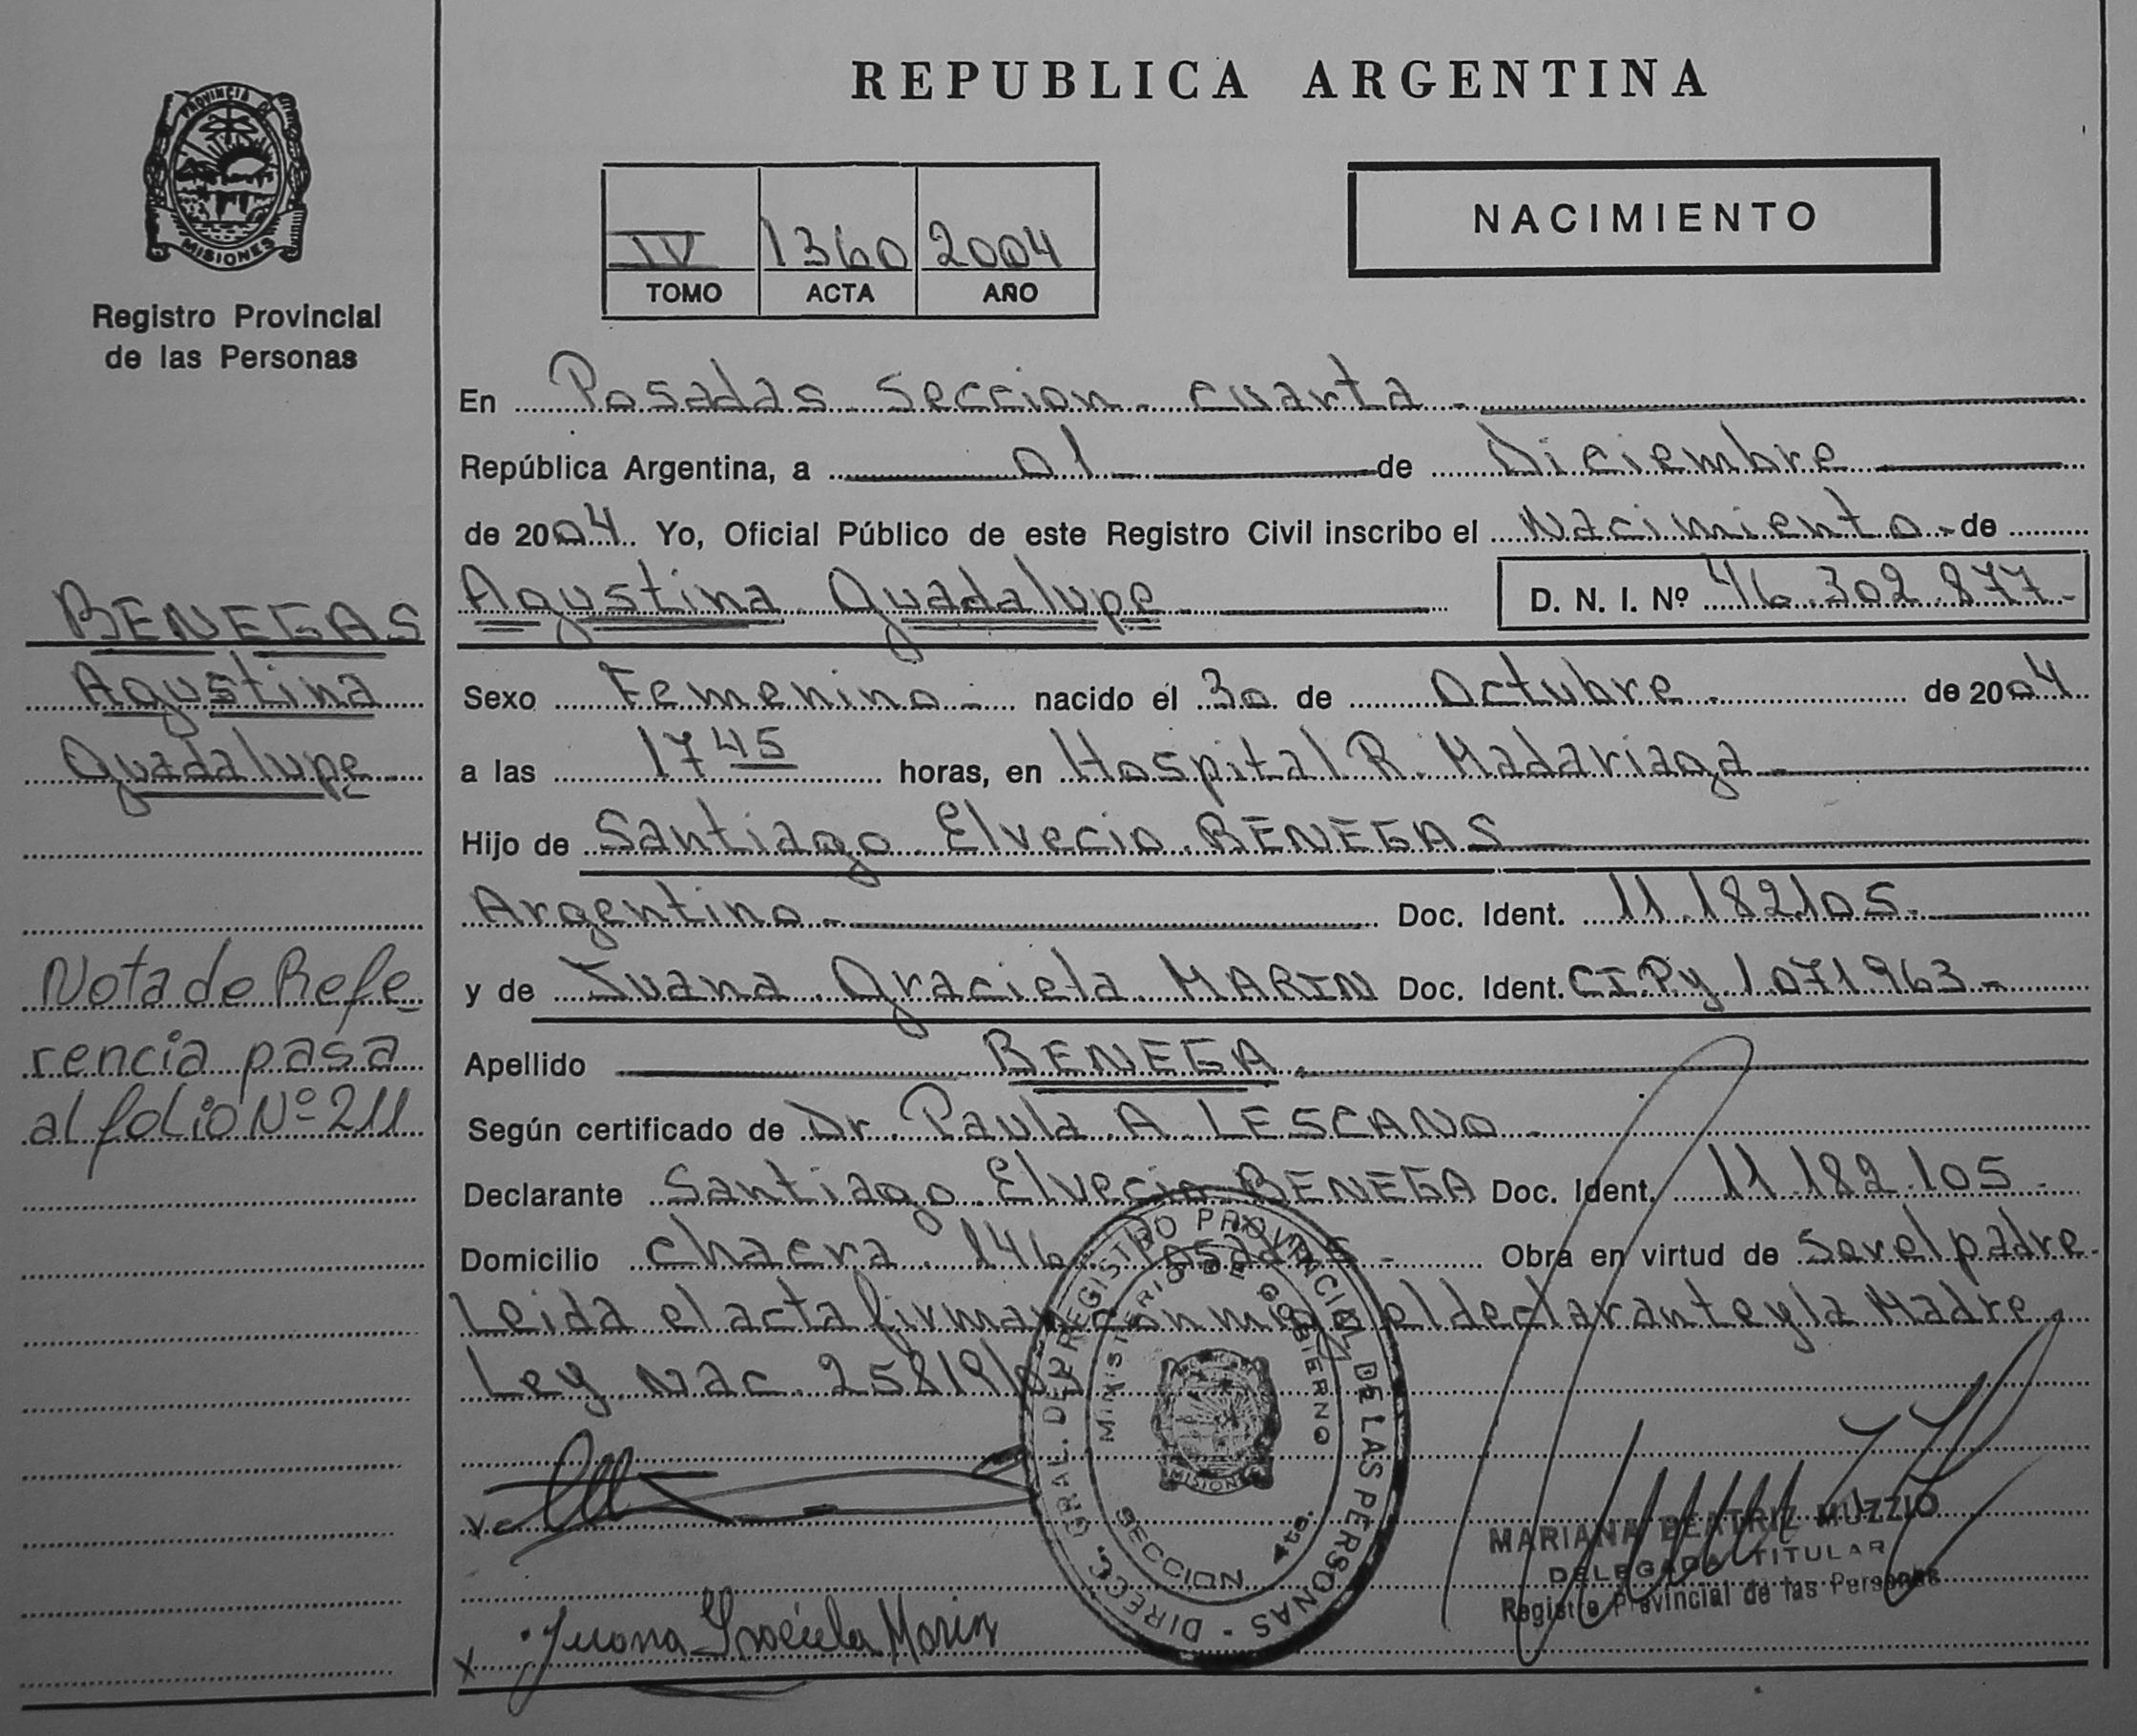 REPUBLICA ARGENTINA
PROVINCIA DE
MISIONES
Registro Provincial
de las Personas
IV 1360 2004
TOMO ACTA AÑO
NACIMIENTO
En Posadas Seccion cuarta
República Argentina, a 01 de Diciembre
de 2004 Yo, Oficial Público de este Registro Civil inscribo el Nacimiento de
Agustina Guadalupe D. N. I. Nº 46.302.877
Sexo Femenino nacido el 30 de Octubre de 2004
a las 17 45 horas, en Hospital R. Madariaga
Hijo de Santiago Elvecio BENEGAS
Argentino Doc. Ident. 11.182105
y de Juana Graciela MARIN Doc. Ident. C.I.Py 1071963
Apellido BENEGA
Según certificado de Dr. Paula A LESCANO
Declarante Santiago Elvecio BENEGA Doc. Ident. 11.182.105
Domicilio chacra 146 Posadas Obra en virtud de Ser el padre
Leida el acta firman conmigo el declarante y la Madre
Ley Nac. 25819/03
BENEGAS
Agustina
Guadalupe
Nota de Refe
rencia pasa
al folio Nº 211
DIRECC. GRAL. DEL REGISTRO PROVINCIAL DE LAS PERSONAS
MINISTERIO DE GOBIERNO
MISIONES
SECCION 4ta.
MARIANA BEATRIZ MUZZIO
DELEGADA TITULAR
Registro Provincial de las Personas
x Juana Graciela Marin